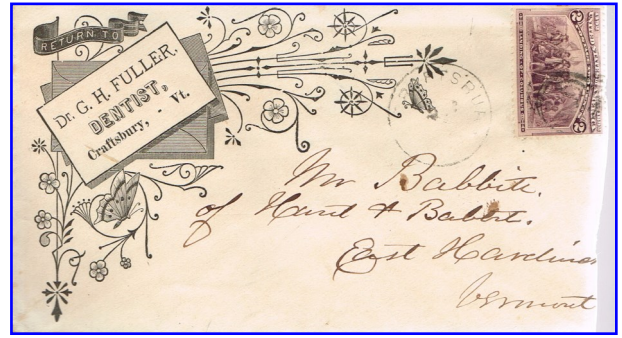 RETURN TO
Dr. G. H. FULLER.
DENTIST,
Craftsbury, - Vt.
2 2
Mr Babbitt.
of & Babbit.
East
Vermont